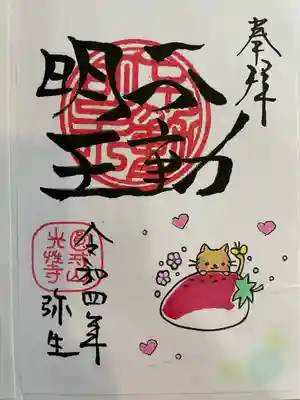 奉拝
不動
明王
令和四年
弥生
光性寺